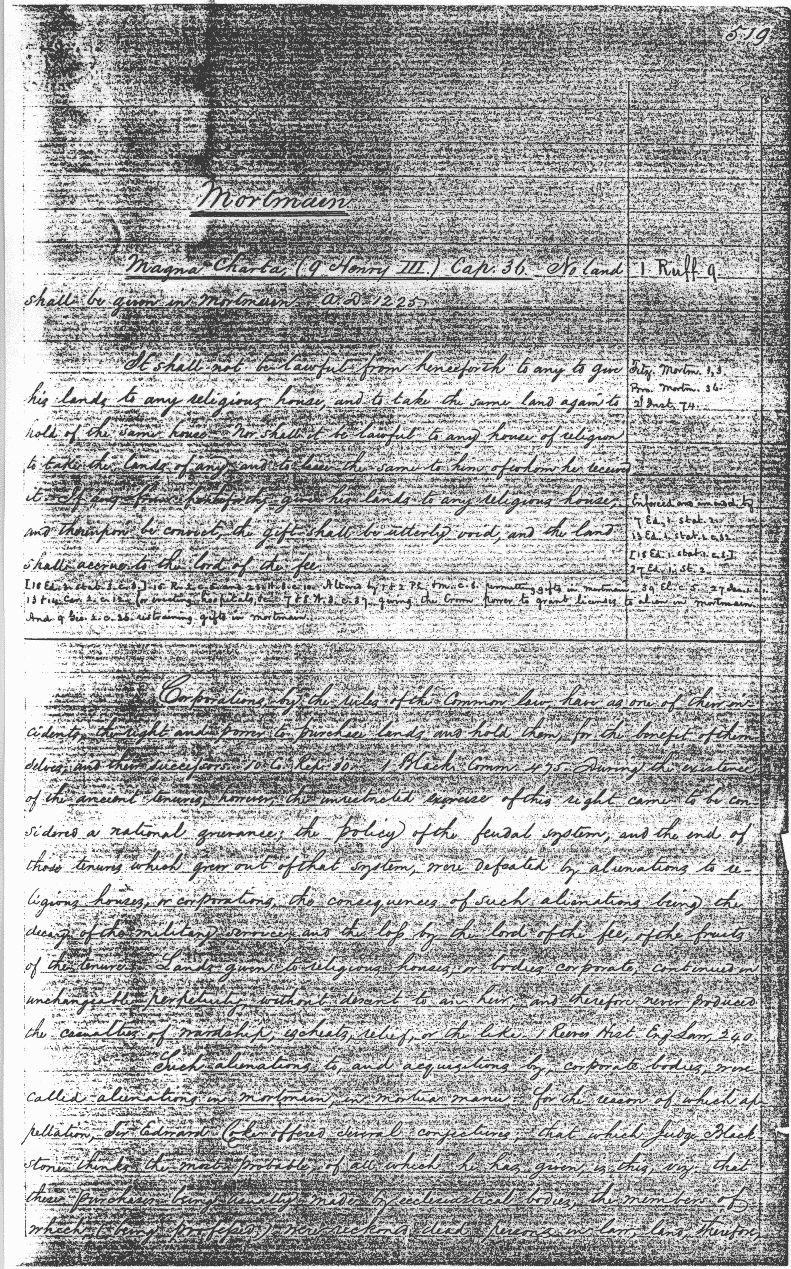 519
Mortmain
Magna Charta, (9 Henry III.) Cap. 36. No land
1 Ruff. 9.
shall be given in Mortmain. A.D. 1225.
It shall not be lawful from henceforth to any to give
his lands to any religious house, and to take the same land again to
hold of the same house. Nor shall it be lawful to any house of religion
to take the lands of any, and to lease the same to him of whom he received
it. If any from henceforth give his lands to any religious house,
and thereupon be convict, the gift shall be utterly void, and the land
shall accrue to the lord of the fee.
Fitz. Mortm. 1, 3.
Bro. Mortm. 36.
2 Inst. 74.
Enforced and amended by
7 Ed. 1. stat. 2.
13 Ed. 1. stat. 1. c. 32.
[18 Ed. 1. stat. 1. c. 3.]
27 Ed. 1. St. 2.
[18 Ed. 3. stat. 3. c. 3.] 15 R. 2. c. 5. and 23 H. 8. c. 10. Altered by 1 & 2 P. & M. c. 8. permitting gifts in mortmain. 39 El. c. 5.
13 & 14 Car. 2. c. 12. for erecting hospitals, &c. 7 & 8 W. 3. c. 37. giving the Crown power to grant licenses to alien in mortmain.
And 9 Geo. 2. c. 36. restraining gifts in mortmain.
Corporations, by the rules of the Common law, have as one of their in-
cidents, the right and power to purchase lands and hold them, for the benefit of them
selves, and their successors. 10 Co. Rep. 30. 1 Black. Comm. 475. During the existence
of the ancient tenures, however, the unrestricted exercise of this right came to be con-
sidered a national grievance; the policy of the feudal system, and the end of
those tenures which grew out of that system, were defeated by alienations to re-
ligious houses, or corporations, the consequences of such alienations being the
decay of the military service, and the loss by the lord of the fee, of the fruits
of the tenure. Lands given to religious houses, or bodies corporate, continued in
unchangeable perpetuity, without descent to an heir, and therefore never produced
the casualties of wardship, escheats, relief, or the like. 1 Reeves Hist. Eng. Law, 240.
Such alienations to, and acquisitions by, corporate bodies, were
called alienations in mortmain, in mortua manu. For the reason of which ap
pellation, Sir Edward Coke offered several conjectures; that which Judge Black
stone thinks the most probable of all which he has given is this, viz: that
these purchases being usually made by ecclesiastical bodies, the members of
which (being professed) were reckoned dead persons in law, land, therefore,